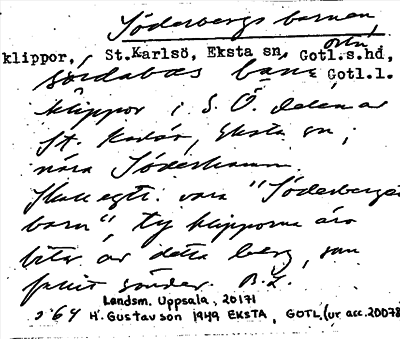 Söderbergs barnen,
klippor, St.Karlsö, Eksta sn, Gotl.s.hd,
Gotl.l.
klippor i S. Ö. delen av
St. Karlsö, Eksta sn,
nära Söderhamn.
Skall egtl. vara "Söderberget
barn", ty klipporna äro
bitar av detta berg, som
fallit sönder. B.L.
Landsm. Uppsala, 20171
564 H. Gustavson 1949 EKSTA, GOTL. (ur acc. 20078